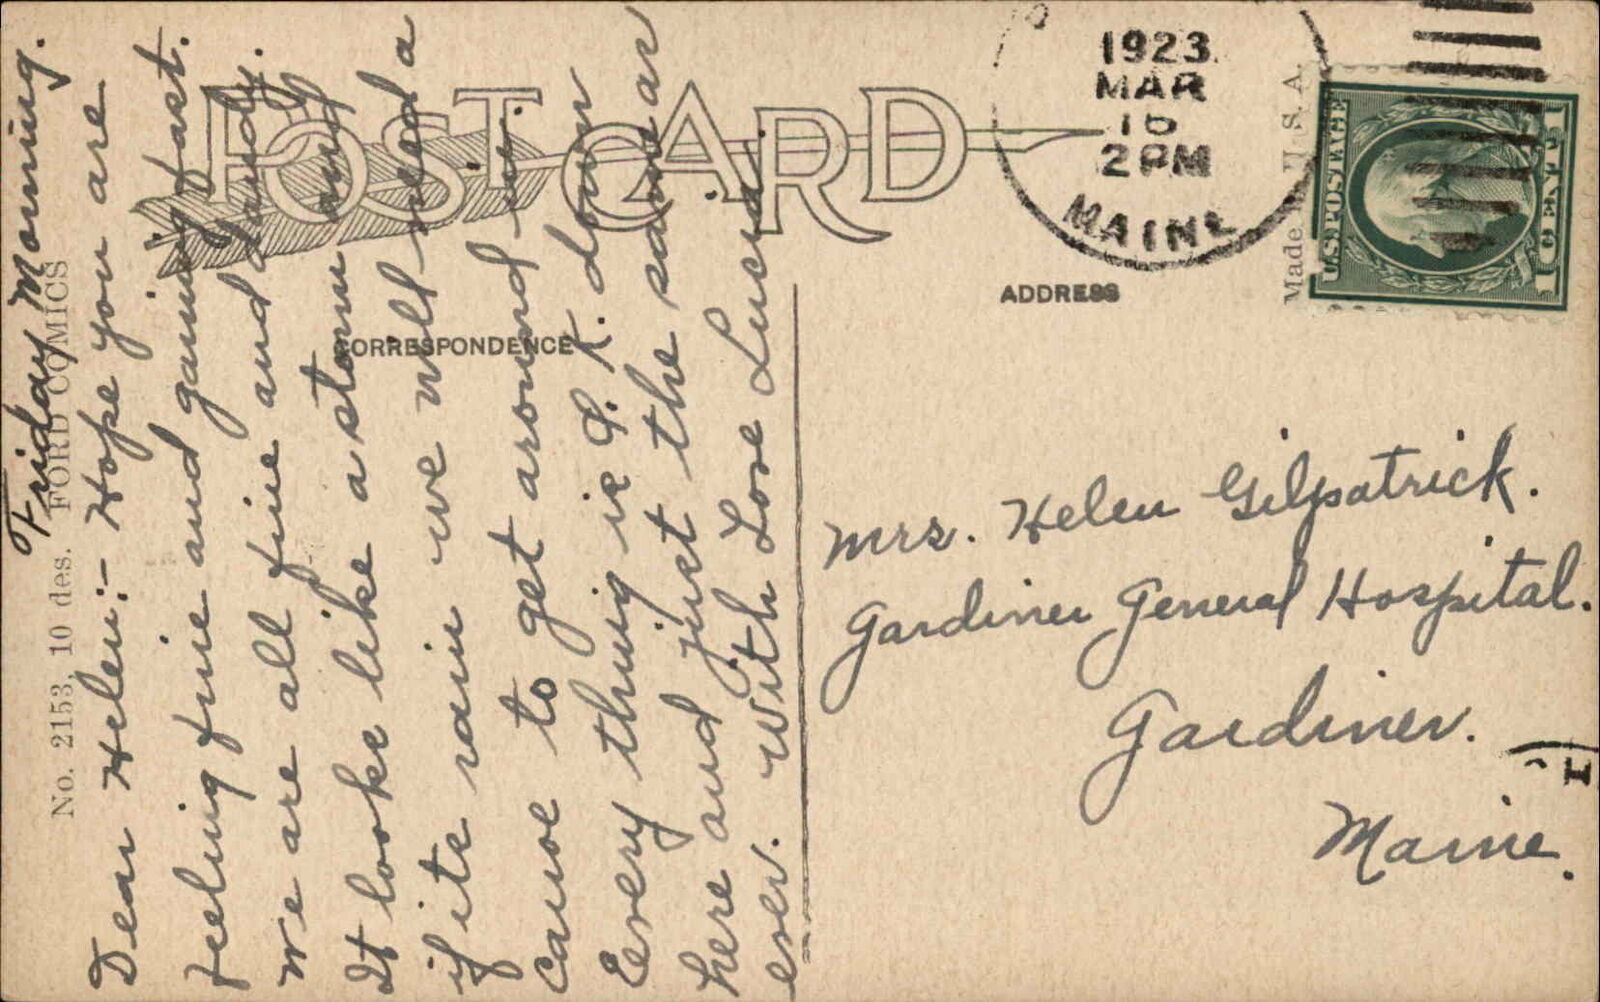 Friday Morning.
Dear Helen:- Hope you are
feeling fine and gaining fast.
We are all fine and dandy.
It looks like a storm and
if its rain we will need a
canoe to get around in.
Every thing is O.K. down
here and just the same as
ever. With Love Lucid.
No. 2153, 10 des. FORD COMICS
POST CARD
CORRESPONDENCE
ADDRESS
Made U.S.A.
1923
MAR
2 PM
MAINE
U.S. POSTAGE
1 CENT 1
Mrs. Helen Gilpatrick.
Gardiner General Hospital.
Gardiner.
Maine.